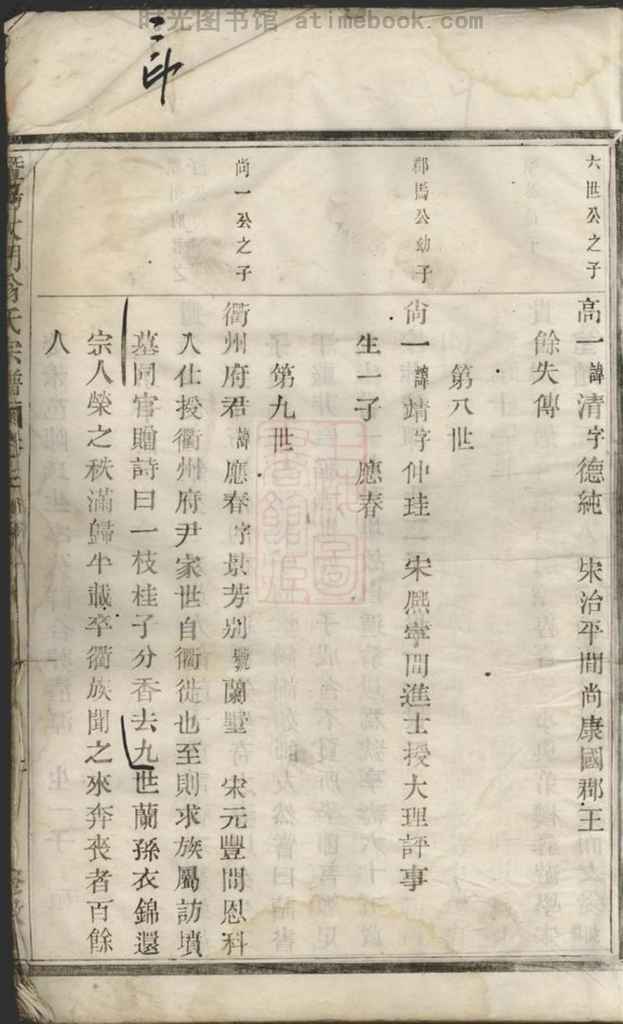 时光图书馆 atimebook.com
六世公之子
高一諱清字德純 宋治平間尚康國郡王
餘失傳
第八世
郡馬公幼子
尙一諱靖字仲珪 宋熈寧間進士授大理評事
生一子 應春
第九世
尙一公之子
衢州府君諱應春字景芳别號蘭墅 宋元豐間恩科
入仕授衢州府尹家世自衢徙也至則求族屬訪墳
墓同官贈詩曰一枝桂子分香去九世蘭孫衣錦還
宗人榮之秩滿歸半載卒衢族聞之來奔喪者百餘
人